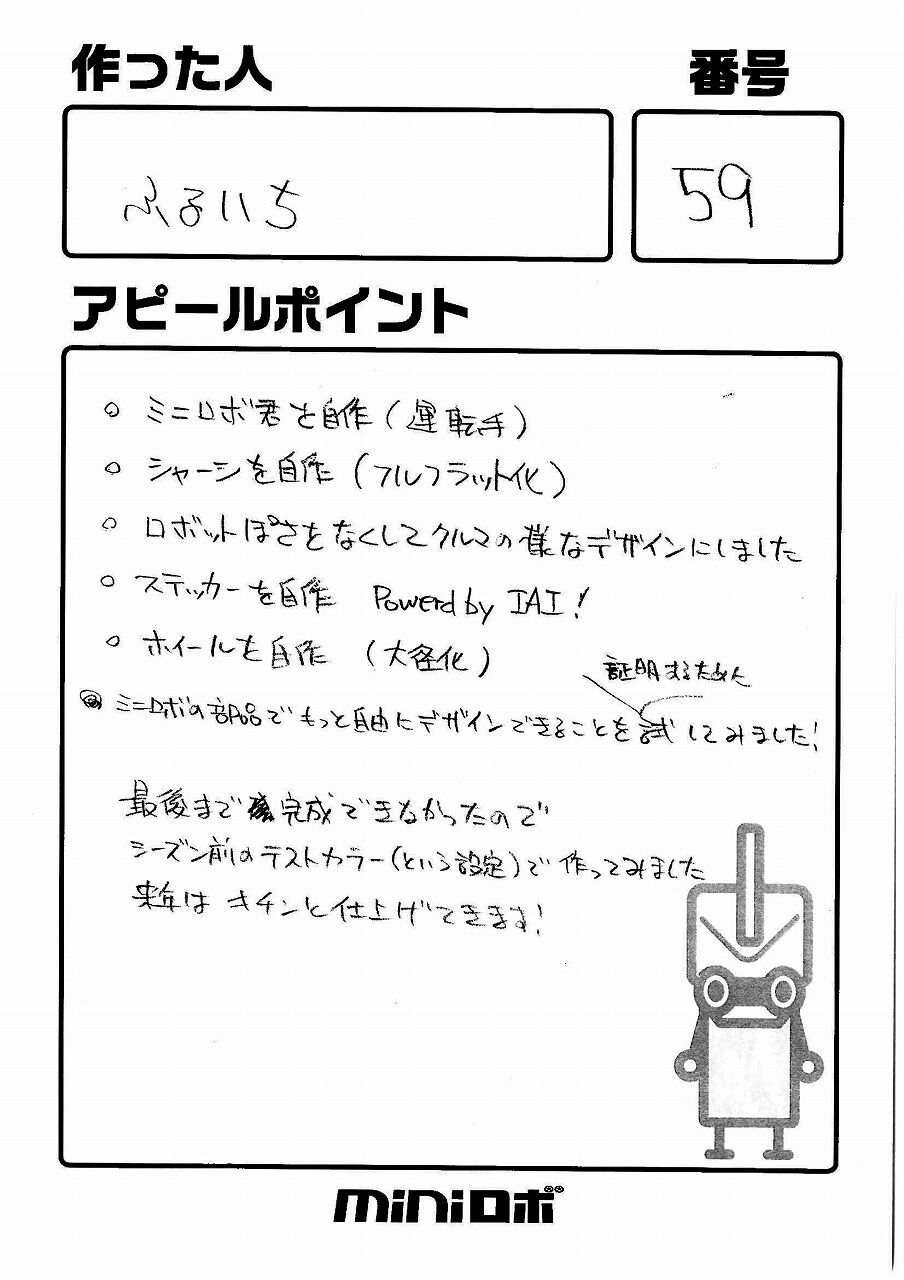 作った人
番号
ふるいち
59
アピールポイント
○ ミニロボ君を自作(運転手)
○ シャーシを自作(フルフラット化)
○ ロボットぽさをなくしてクルマの様なデザインにしました
○ ステッカーを自作 Powerd by IAI!
○ ホイールを自作 (大径化)
証明するために
ミニロボの部品でもっと自由にデザインできることを試してみました!
最後まで完成できなかったので
シーズン前のテストカラー(という設定)で作ってみました
来年はキチンと仕上げてきます!
miniロボ